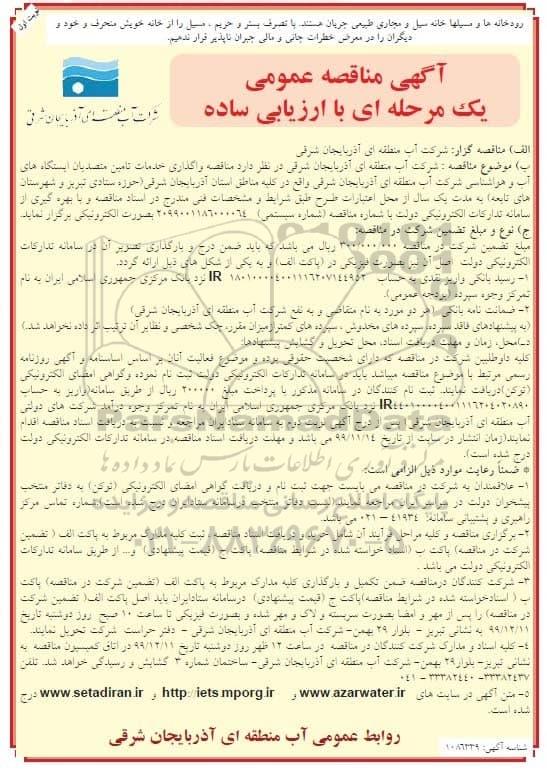 نوبت اول
رودخانه ها و مسیلها خانه سیل و مجاری طبیعی جریان هستند. با تصرف بستر و حریم ، مسیل را از خانه خویش منحرف و خود و
دیگران را در معرض خطرات جانی و مالی جبران ناپذیر قرار ندهیم.
آگهی مناقصه عمومی
یک مرحله ای با ارزیابی ساده
شرکت آب منطقه ای آذربایجان شرقی
الف) مناقصه گزار: شرکت آب منطقه ای آذربایجان شرقی
ب) موضوع مناقصه : شرکت آب منطقه ای آذربایجان شرقی در نظر دارد مناقصه واگذاری خدمات تامین متصدیان ایستگاه های
آب و هواشناسی شرکت آب منطقه ای آذربایجان شرقی واقع در کلیه مناطق استان آذربایجان شرقی(حوزه ستادی تبریز و شهرستان
های تابعه) به مدت یک سال از محل اعتبارات طرح طبق شرایط و مشخصات فنی مندرج در اسناد مناقصه و با بهره گیری از
سامانه تدارکات الکترونیکی دولت با شماره مناقصه (شماره سیستمی) ۲۰۹۹۰۰۱۱۸۶۰۰۰۰۶۴ بصورت الکترونیکی برگزار نماید.
ج) نوع و مبلغ تضمین شرکت در مناقصه:
مبلغ تضمین شرکت در مناقصه ۳۰۰/۰۰۰/۰۰۰ ریال می باشد که باید ضمن درج و بارگذاری تصویر آن در سامانه تدارکات
الکترونیکی دولت اصل آن نیز بصورت فیزیکی در (پاکت الف) و به یکی از شکل های ذیل ارائه گردد.
۱- رسید بانکی واریز نقدی به حساب IR ۱۸۰۱۰۰۰۰۴۰۰۱۱۱۶۲۰۷۱۴۴۹۵۲ نزد بانک مرکزی جمهوری اسلامی ایران به نام
تمرکز وجوه سپرده (بودجه عمومی).
۲- ضمانت نامه بانکی (هر دو مورد به نام متقاضی و به نفع شرکت آب منطقه ای آذربایجان شرقی)
(به پیشنهادهای فاقد سپرده، سپرده های مخدوش ، سپرده های کمتر از میزان مقرر، چک شخصی و نظایر آن ترتیب اثر داده نخواهد شد.)
د-)محل، زمان و مهلت دریافت اسناد، محل تحویل و گشایش پیشنهادها:
کلیه داوطلبین شرکت در مناقصه که دارای شخصیت حقوقی بوده و موضوع فعالیت آنان بر اساس اساسنامه و آگهی روزنامه
رسمی مرتبط با موضوع مناقصه میباشد باید در سامانه تدارکات الکترونیکی دولت ثبت نام نموده وگواهی امضای الکترونیکی
(توکن)دریافت نمایند. ثبت نام کنندگان در سامانه مذکور با پرداخت مبلغ ۲۰۰۰۰۰ ریال از طریق سامانه(واریز به حساب
IR۴۴۰۱۰۰۰۰۴۰۰۱۱۱۶۲۰۴۰۲۰۸۹۰ نزد بانک مرکزی جمهوری اسلامی ایران به نام تمرکز وجوه درآمد شرکت های دولتی
آب منطقه ای آذربایجان شرقی) پس از درج آگهی نوبت دوم به سامانه ستاد ایران مراجعه و نسبت به دریافت اسناد مناقصه اقدام
نمایند(زمان انتشار در سایت از تاریخ ۹۹/۱۱/۱۴ می باشد و مهلت دریافت اسناد مناقصه در سامانه تدارکات الکترونیکی دولت
درج شده است).
* ضمناً رعایت موارد ذیل الزامی است:
۱- علاقمندان به شرکت در مناقصه می بایست جهت ثبت نام و دریافت گواهی امضای الکترونیکی (توکن) به دفاتر منتخب
پیشخوان دولت در سراسر کشور مراجعه نمایند(لیست دفاتر منتخب درسامانه ستادایران درج شده است)شماره تماس مرکز
راهبری و پشتیبانی سامانه: ۴۱۹۳۴ – ۰۲۱ می باشد.
۲- برگزاری مناقصه و کلیه مراحل فرآیند آن شامل خرید و دریافت اسناد مناقصه، ثبت کلیه مدارک مربوط به پاکت الف ( تضمین
شرکت در مناقصه) پاکت ب (اسناد خواسته شده در شرایط مناقصه) پاکت ج (قیمت پیشنهادی) و... از طریق سامانه تدارکات
الکترونیکی دولت می باشد .
۳- شرکت کنندگان درمناقصه ضمن تکمیل و بارگذاری کلیه مدارک مربوط به پاکت الف (تضمین شرکت در مناقصه) پاکت
ب ( اسنادخواسته شده در شرایط مناقصه)پاکت ج (قیمت پیشنهادی) درسامانه ستادایران باید اصل پاکت الف( تضمین شرکت
در مناقصه) را پس از مهر و امضا بصورت سربسته و لاک و مهر شده و بصورت فیزیکی تا ساعت ۱۰ صبح روز دوشنبه تاریخ
۹۹/۱۲/۱۱ به نشانی تبریز - بلوار ۲۹ بهمن- شرکت آب منطقه ای آذربایجان شرقی – دفتر حراست شرکت تحویل نمایند.
۴- کلیه اسناد و مدارک شرکت کنندگان در مناقصه در ساعت ۱۲ ظهر روز دوشنبه تاریخ ۹۹/۱۲/۱۱ در اتاق کمیسیون مناقصه به
نشانی تبریز- بلوار۲۹ بهمن- شرکت آب منطقه ای آذربایجان شرقی- ساختمان شماره ۳ گشایش و رسیدگی خواهد شد. تلفن
۳۳۳۸۲۴۳۷- ۳۳۳۸۲۴۴۰ – ۰۴۱
۵- متن آگهی در سایت های www.azarwater.ir و http://iets.mporg.ir و www.setadiran.ir درج
شده است.
روابط عمومی آب منطقه ای آذربایجان شرقی
شناسه آگهی: ۱۰۸۶۳۳۹